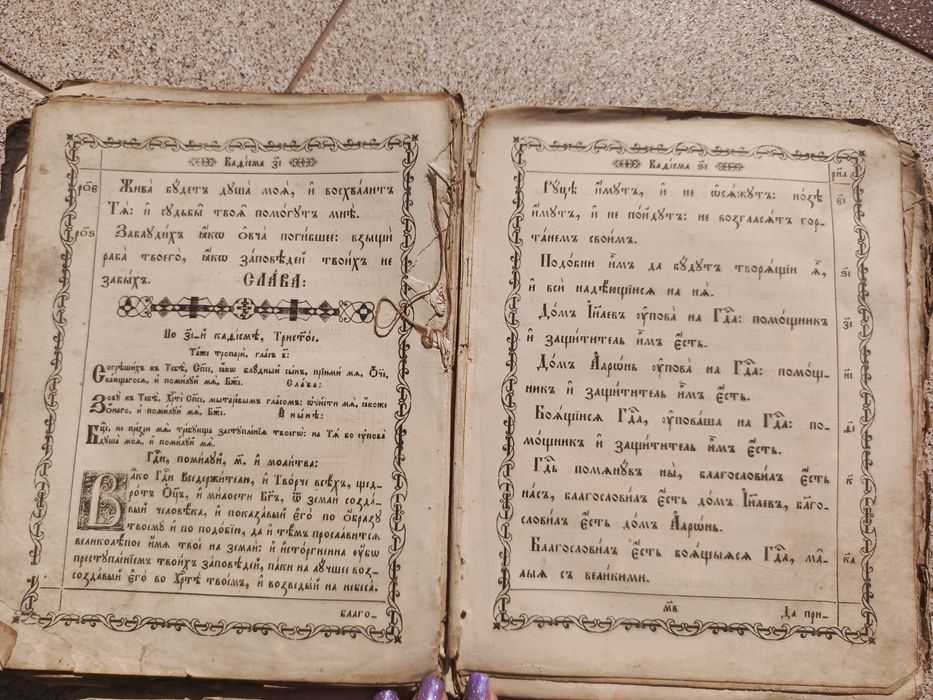 Каѳі́сма з҃і
ро҃е Жива̀ бꙋ́детъ дꙋша̀ моѧ̀, и҆ восхва́литъ
Тѧ̀: и҆ сꙋдьбы̑ твоѧ̑ помо́гꙋтъ мнѣ̀.
ро҃ѕ Заблꙋди́хъ ꙗ҆́кѡ ѻ҆вча̀ поги́бшее: взыщѝ
раба̀ твоего̀, ꙗ҆́кѡ за́повѣдей твои́хъ не
забы́хъ. СЛА́ВА:
По з҃і-й каѳі́смѣ, Трист҃о́е.
Та́же тропарѝ, гла́съ в҃:
Согрѣши́хъ къ Тебѣ̀, Сп҃се, ꙗ҆́кѡ блꙋ́дный сы́нъ, прїимѝ мѧ, Ѻ҆́ч҃е,
ка́ющагосѧ, и҆ поми́лꙋй мѧ̀, Бж҃е. Сла́ва:
Зовꙋ̀ къ Тебѣ̀, Хрт҃ѐ Сп҃се, мытаре́вымъ гла́сомъ: ѡ҆чи́сти мѧ̀, ꙗ҆́коже
ѻ҆́наго, и҆ поми́лꙋй мѧ̀, Бж҃е. И҆ ны́нѣ:
Бц҃е, не пре́зри мѧ̀ тре́бꙋюща застꙋпле́нїѧ твоегѡ̀: на Тѧ́ бо ᲂу҆пова̀
дꙋша̀ моѧ̀, и҆ поми́лꙋй мѧ.
Гд҃и, поми́лꙋй, м҃. И҆ моли́тва:
Влⷣко Гд҃и Вседержи́телю, и҆ Тво́рче всѣ́хъ, щед-
ро́тъ Ѻ҆ц҃ъ, и҆ ми́лости Бг҃ъ, ѿ землѝ созда́-
вый человѣ́ка, и҆ показа́вый є҆го̀ по ѻ҆́бразꙋ
твоемꙋ̀ и҆ по подо́бїю, да и҆ тѣ́мъ просла́витсѧ
великолѣ́пое и҆́мѧ твоѐ на землѝ: и҆ и҆сто́ргнена ᲂу҆́бѡ
престꙋпле́нїемъ твои́хъ за́повѣдей, па́ки на лꙋ́чшее воз-
созда́вый є҆го̀ во Хрт҃ѣ̀ твое́мъ, и҆ возведы́й на небеса̀.
благо-
Каѳі́сма ѕ҃і
рд҃і
є҃і Рꙋ́цѣ и҆́мꙋтъ, и҆ не ѡ҆сѧ́жꙋтъ: но́зѣ
и҆́мꙋтъ, и҆ не по́йдꙋтъ: не возгласѧ́тъ гор-
та́немъ свои́мъ.
ѕ҃і Подо́бни и҆̀мъ да бꙋ́дꙋтъ творѧ́щїи ѧ҆̀,
и҆ всѝ надѣ́ющїисѧ на нѧ̀.
з҃і До́мъ І҆и҃левъ ᲂу҆пова̀ на Гд҃а: помо́щникъ
и҆ защи́титель и҆̀мъ є҆́сть.
и҃і До́мъ А҆арѡ́нь ᲂу҆пова̀ на Гд҃а: помо́щ-
никъ и҆ защи́титель и҆̀мъ є҆́сть.
ѳ҃і Боѧ́щїисѧ Гд҃а, ᲂу҆пова́ша на Гд҃а: по-
мо́щникъ и҆ защи́титель и҆̀мъ є҆́сть.
к҃ Гд҃ь помѧнꙋ́въ ны̀, благослови́лъ є҆́сть
на́съ, благослови́лъ є҆́сть до́мъ І҆и҃левъ, бл҃го-
слови́лъ є҆́сть до́мъ А҆арѡ́нь.
к҃а Благослови́лъ є҆́сть боѧ́щыѧсѧ Гд҃а, ма̑-
лыѧ съ вели́кими.
м҃в Да при-